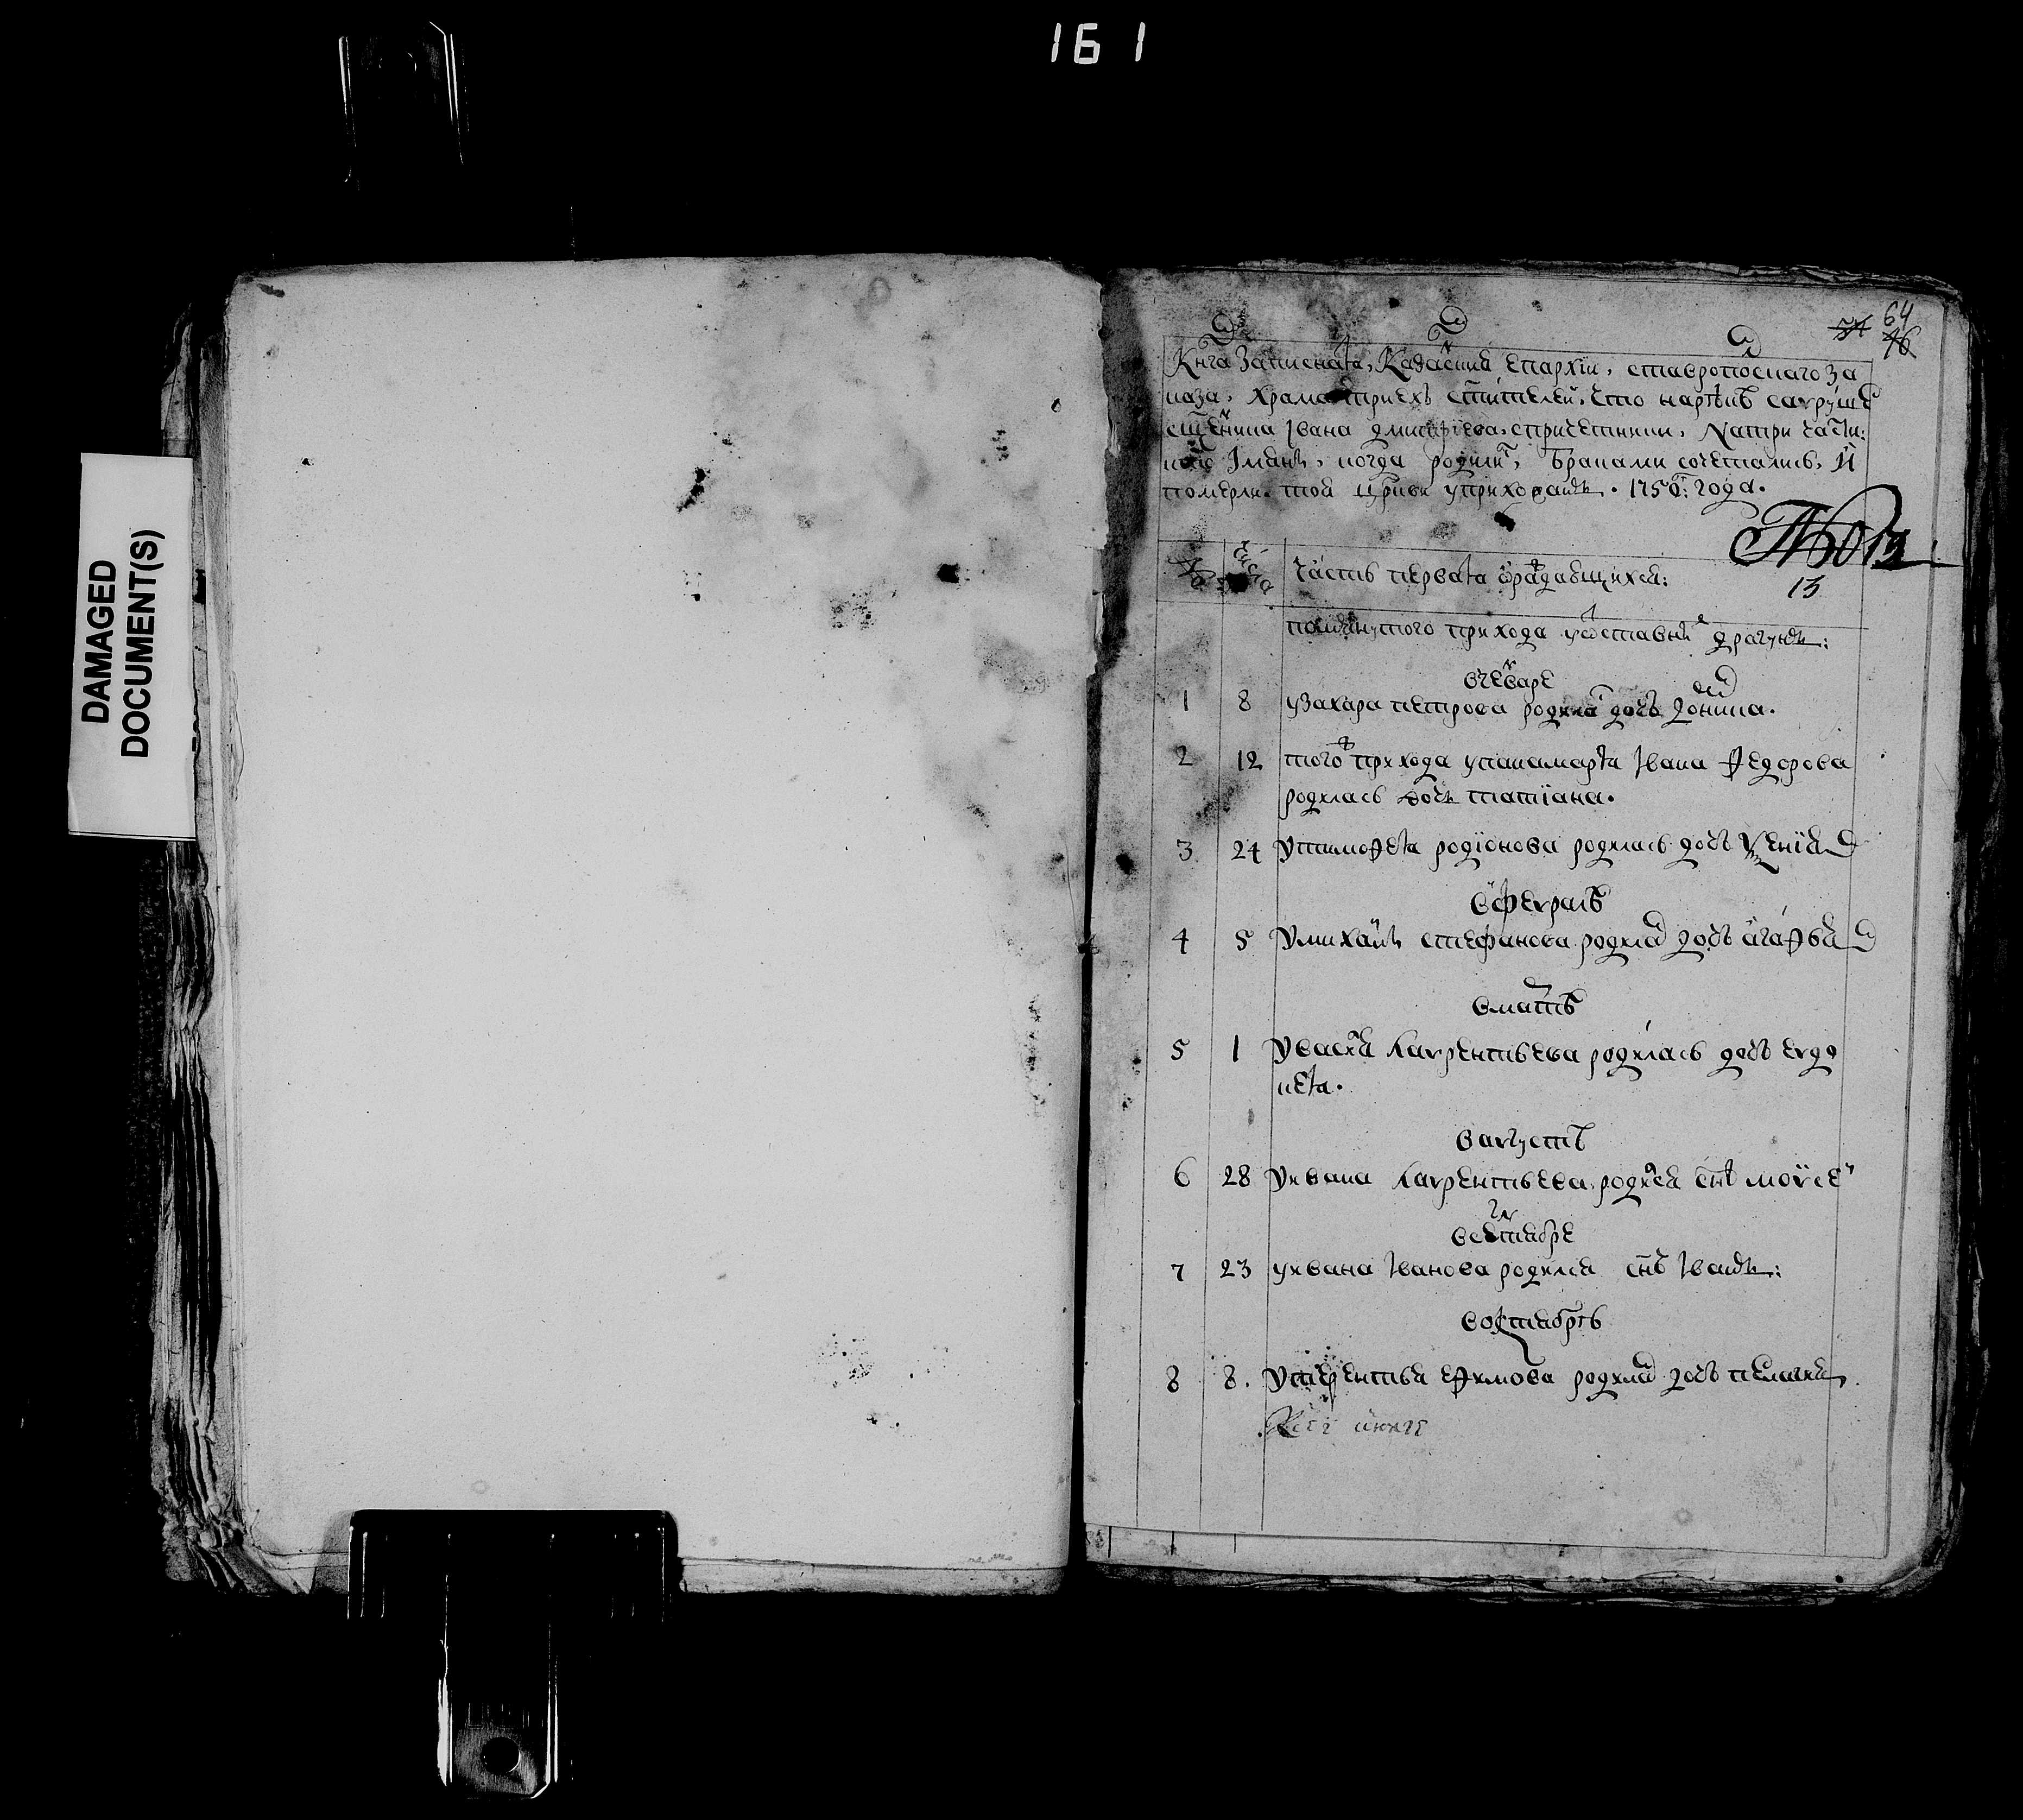 161
DAMAGED
DOCUMENT(S)
64
54 46
Книга Записная, Казанскиа епархїи, ставропоскаго за
каза, храма триехъ стителей, что на рѣкѣ
сщеника Iвана дмитриева, спричетники, На три части:
кто Iмянъ, когда родились, браками сочетались, И
померли той цркви уприхожанъ. 175 года.
13
Часть первая ѡраждающихся:
помянутого прихода уѿставныхъ драгунъ:
вгенваре
1 8 узахара петрова родилась дочь Домника.
2 12 того прихода упанамаря Iвана Федорова
родилась дочь татïана.
3 24 Утимофея родїонова родилась дочь Ѯенїя
вфевралѣ
4 5 Умихаилъ стефанова родилась дочь агафья
вмартѣ
5 1 Увасиля лаврентьева родилась дочь евдо
кея.
вавгустѣ
6 28 Уивана лаврентьева родился снъ моисей
всентябре
7 23 уивана Iванова родился снъ Iванъ:
воктябрѣ
8 8. Утерентья ефимова родилась дочь пелагея